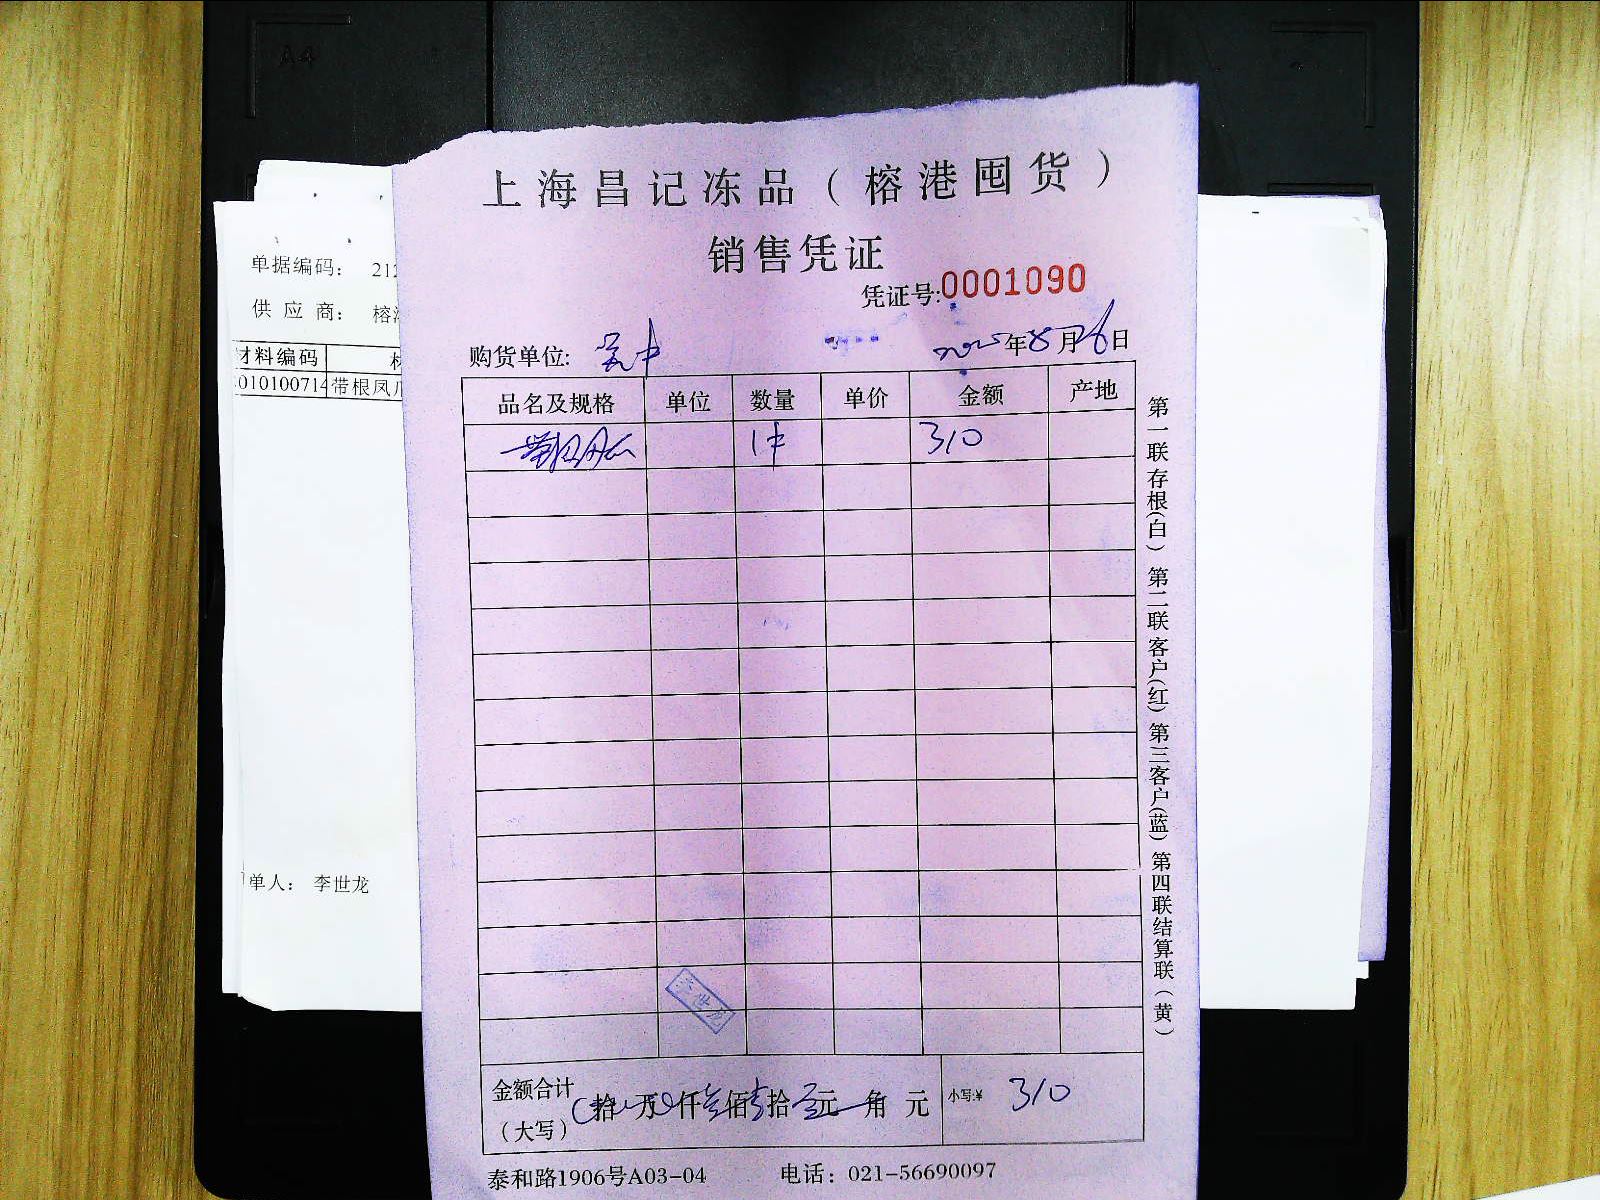 A4
上海昌记冻品（榕港囤货）
销售凭证
凭证号:0001090
购货单位:
年8月26日
品名及规格 单位 数量 单价 金额 产地
1件 310
金额合计（大写） 拾 万 仟 佰 拾 元 角 元 小写:¥ 310
泰和路1906号A03-04 电话：021-56690097
第一联存根(白) 第二联客户(红) 第三客户(蓝) 第四联结算联(黄)
李世龙
单据编码： 212
供应商： 榕港
材料编码
010100714 带根凤爪
单人： 李世龙